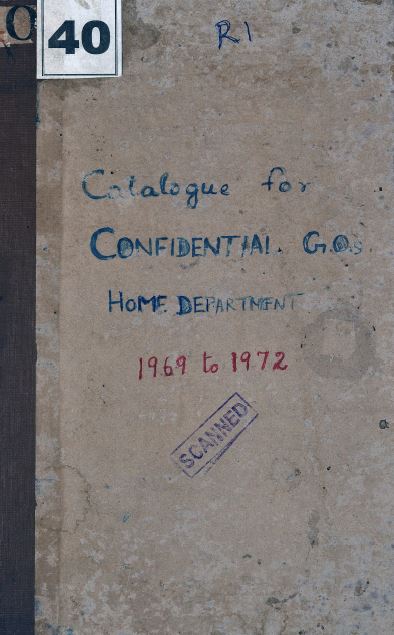 O
40
R1
Catalogue for
CONFIDENTIAL G.Os
HOME DEPARTMENT
1969 to 1972
SCANNED